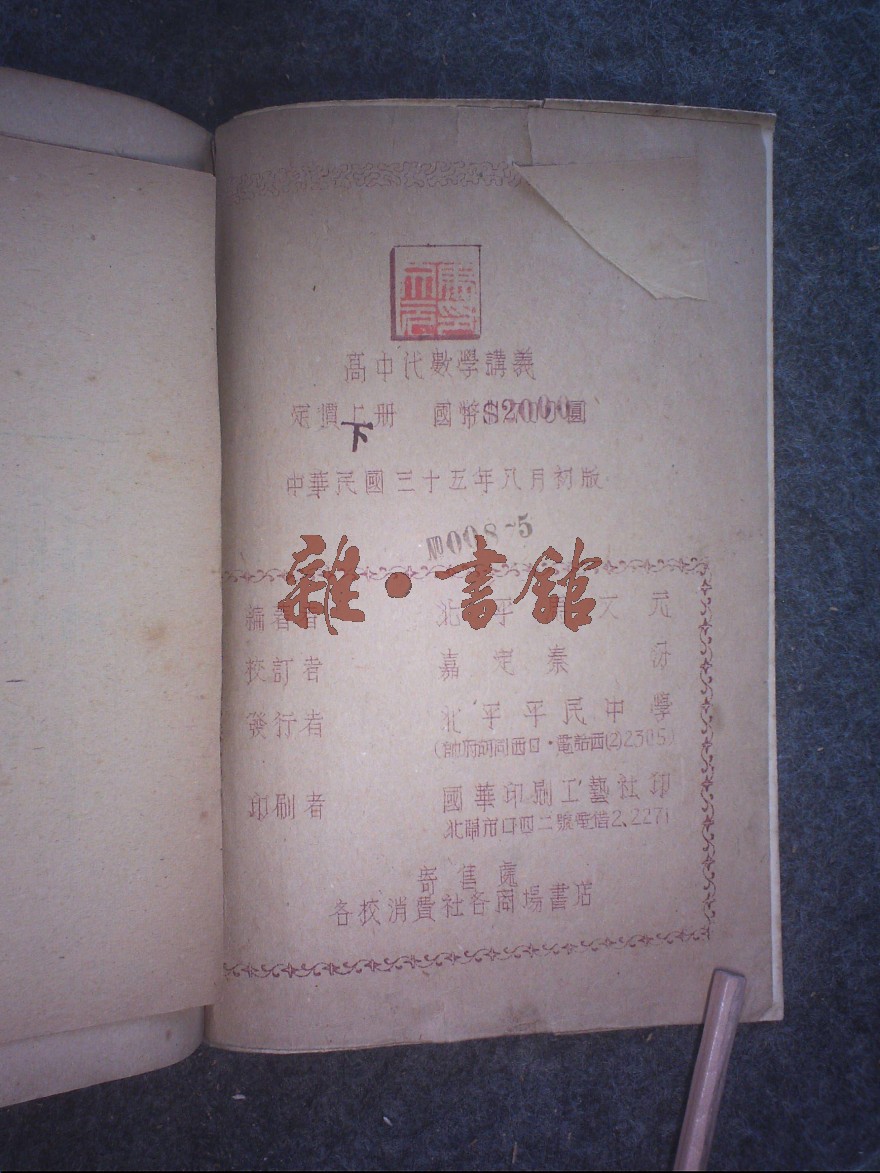 高中代數學講義
定價上册 國幣$2000圓
下
中華民國三十五年八月初版
№008-5
雜·書館
編著者 北平 文元
校訂者 嘉定秦汾
發行者 北平平民中學
(帥府胡同西口·電話西(2)2305)
印刷者 國華印刷工藝社印
北鬧市口四二號電借2、2271
寄售處
各校消費社各商場書店